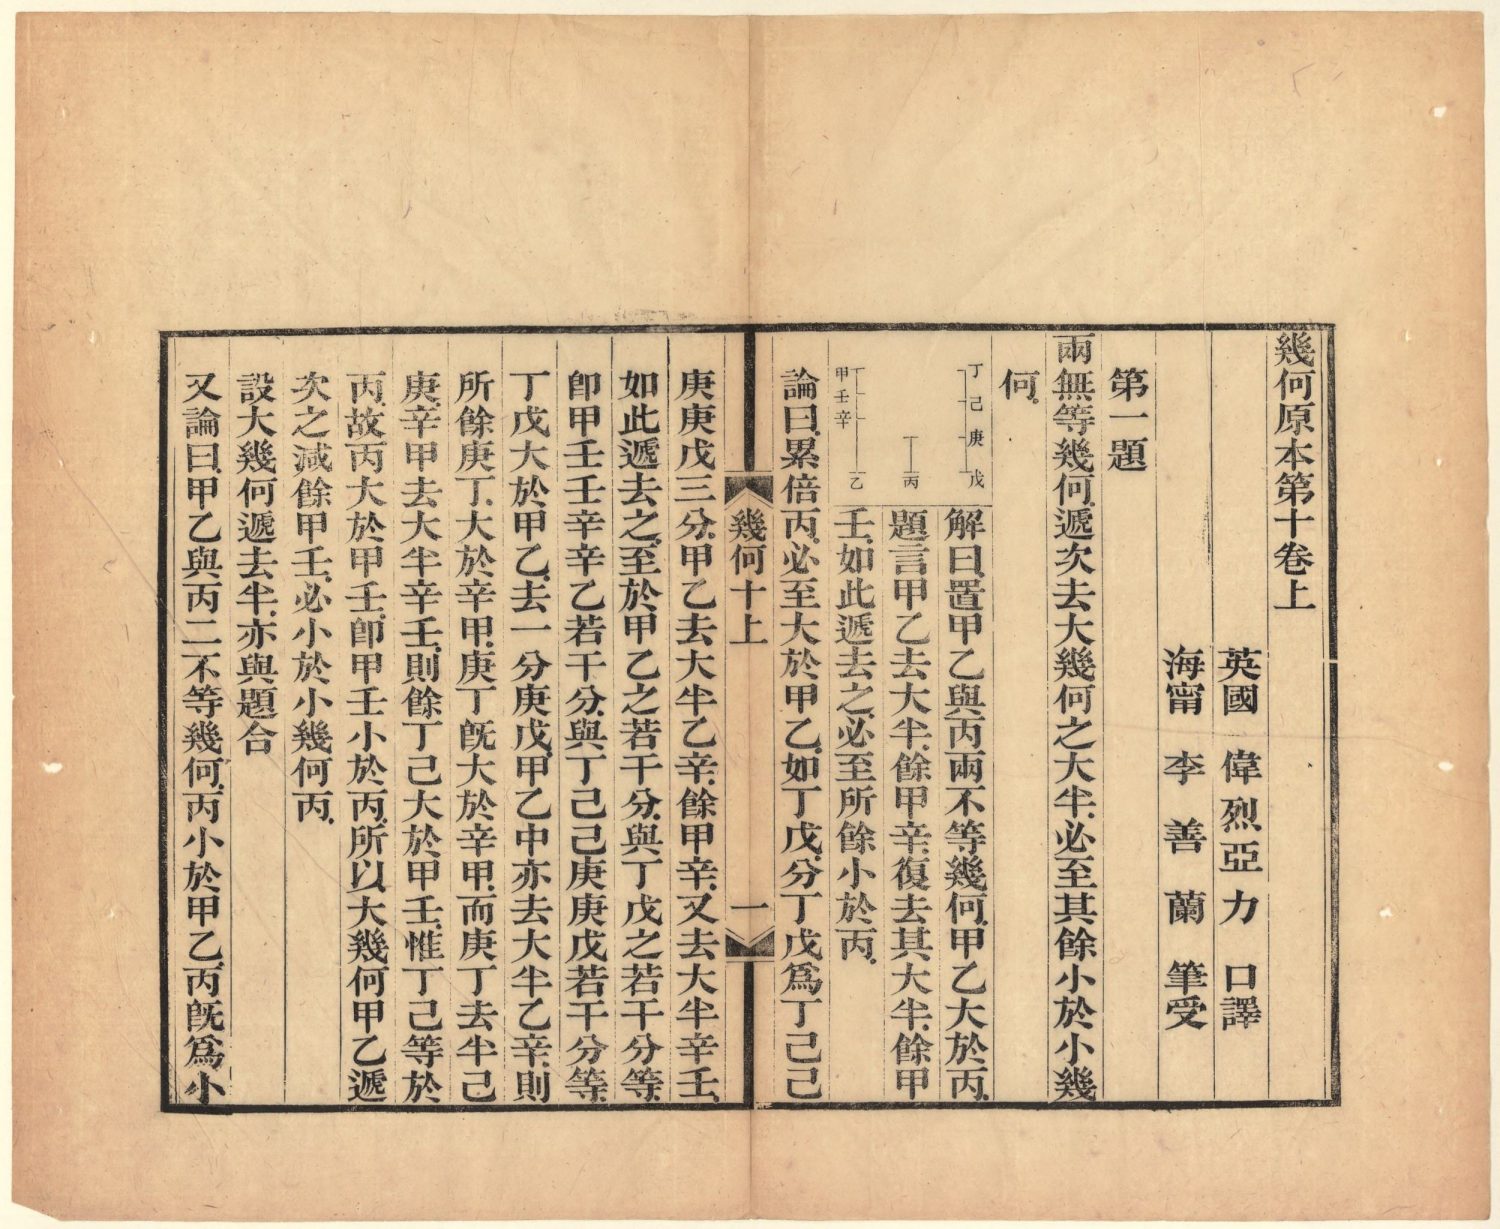 幾何原本第十卷上
英國 偉烈亞力 口譯
海甯 李善蘭 筆受
第一題
兩無等幾何遞次去大幾何之大半必至其餘小於小幾
何。
丁己庚戊
丙
甲壬辛
乙
解曰置甲乙與丙兩不等幾何甲乙大於丙
題言甲乙去大半餘甲辛復去其大半餘甲
壬如此遞去之必至所餘小於丙
論曰累倍丙必至大於甲乙如丁戊分丁戊爲丁己己
幾何十上
一
庚庚戊三分甲乙去大半乙辛餘甲辛又去大半辛壬
如此遞去之至於甲乙之若干分與丁戊之若干分等
卽甲壬壬辛辛乙若干分與丁己己庚庚戊若干分等
丁戊大於甲乙去一分庚戊甲乙中亦去大半乙辛則
所餘庚丁大於辛甲庚丁旣大於辛甲而庚丁去半己
庚辛甲去大半辛壬則餘丁己大於甲壬惟丁己等於
丙故丙大於甲壬卽甲壬小於丙所以大幾何甲乙遞
次之減餘甲壬必小於小幾何丙
設大幾何遞去半亦與題合
又論曰甲乙與丙二不等幾何丙小於甲乙丙旣爲小